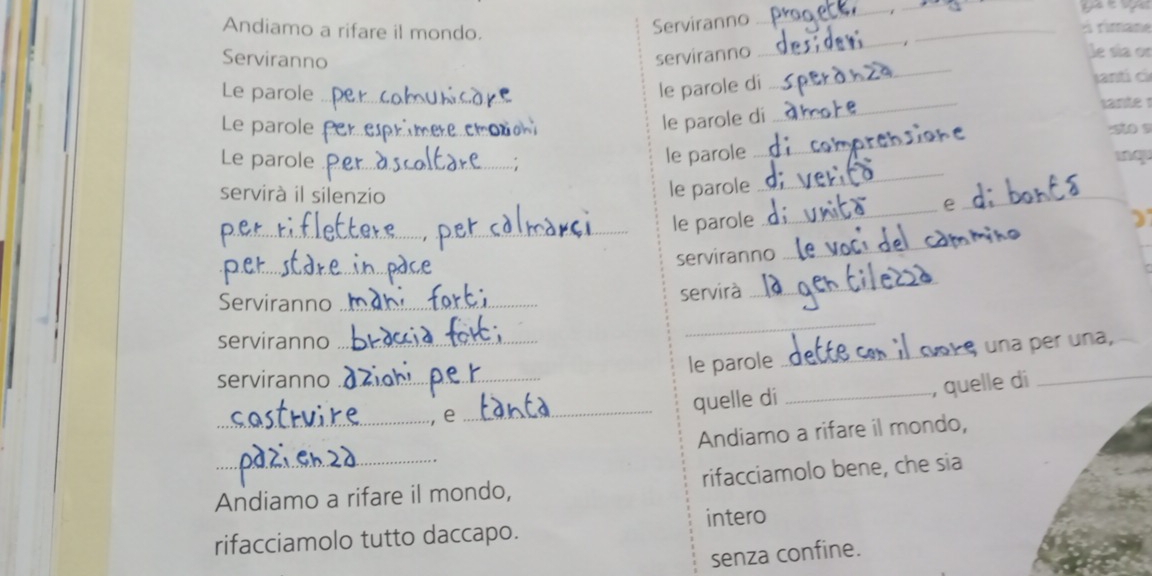 Andiamo a rifare il mondo.
Serviranno
Le parole per comunicare
Le parole per esprimere emozioni
Le parole per ascoltare;
servirà il silenzio
per riflettere, per calmarci
per stare in pace
Serviranno mani forti
serviranno braccia forti
serviranno azioni per
costruire, e tanta
pazienza
Andiamo a rifare il mondo,
rifacciamolo tutto daccapo.
Serviranno progetti,
serviranno desideri,
le parole di speranza
le parole di amore
le parole di comprensione
le parole di verità
le parole di unità e di bontà
serviranno le voci del cammino
servirà la gentilezza
le parole dette con il cuore, una per una,
quelle di, quelle di
Andiamo a rifare il mondo,
rifacciamolo bene, che sia
intero
senza confine.
rimane
le sia